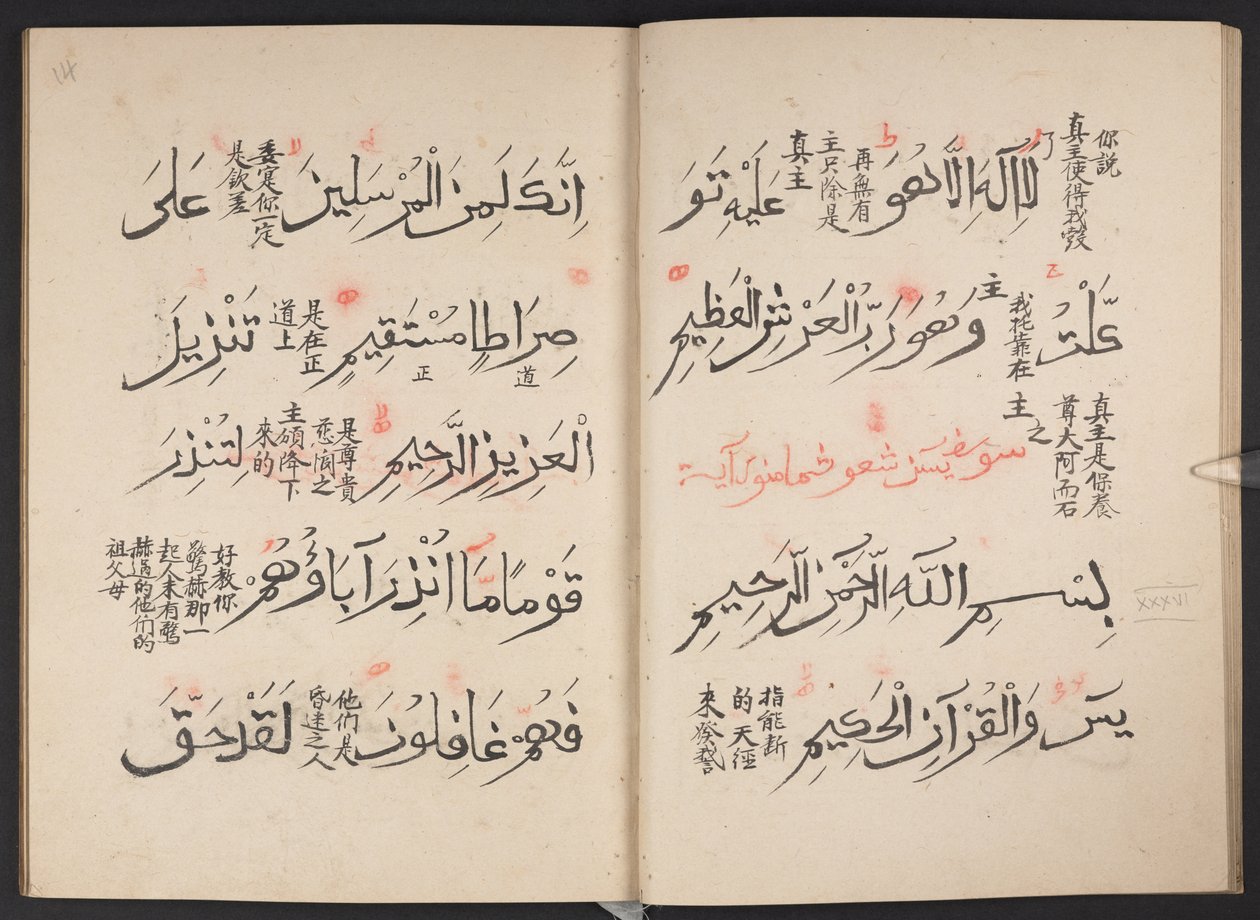 你説
真主使得我彀
了
لَا إِلَهَ إِلَّا هُوَ
再無有
主只除是
真主
عَلَيْهِ تَوَ
كَّلْتُ
我托靠在
主
وَهُوَ رَبُّ الْعَرْشِ الْعَظِيمِ
真主是保養
尊大阿而石
之
主
بِسْمِ اللَّهِ الرَّحْمَنِ الرَّحِيمِ
XXXVI
يس وَالْقُرْآنِ الْحَكِيمِ
指能斷
的天經
來發誓
14
اِنَّكَ لَمِنَ الْمُرْسَلِينَ
委寔你一定
是欽差
عَلَى
صِرَاطٍ مُسْتَقِيمٍ
道
正
是在正
道上
تَنْزِيلَ
الْعَزِيزِ الرَّحِيمِ
是尊貴
慈憫之
主頒降下
來的
لِتُنْذِرَ
قَوْمًا مَا اُنْذِرَ آبَاؤُهُمْ
好教你
驚赫那一
起人未有驚
赫過的他們的
祖父母
فَهُمْ غَافِلُونَ
他們是
昏迷之人
لَقَدْ حَقَّ